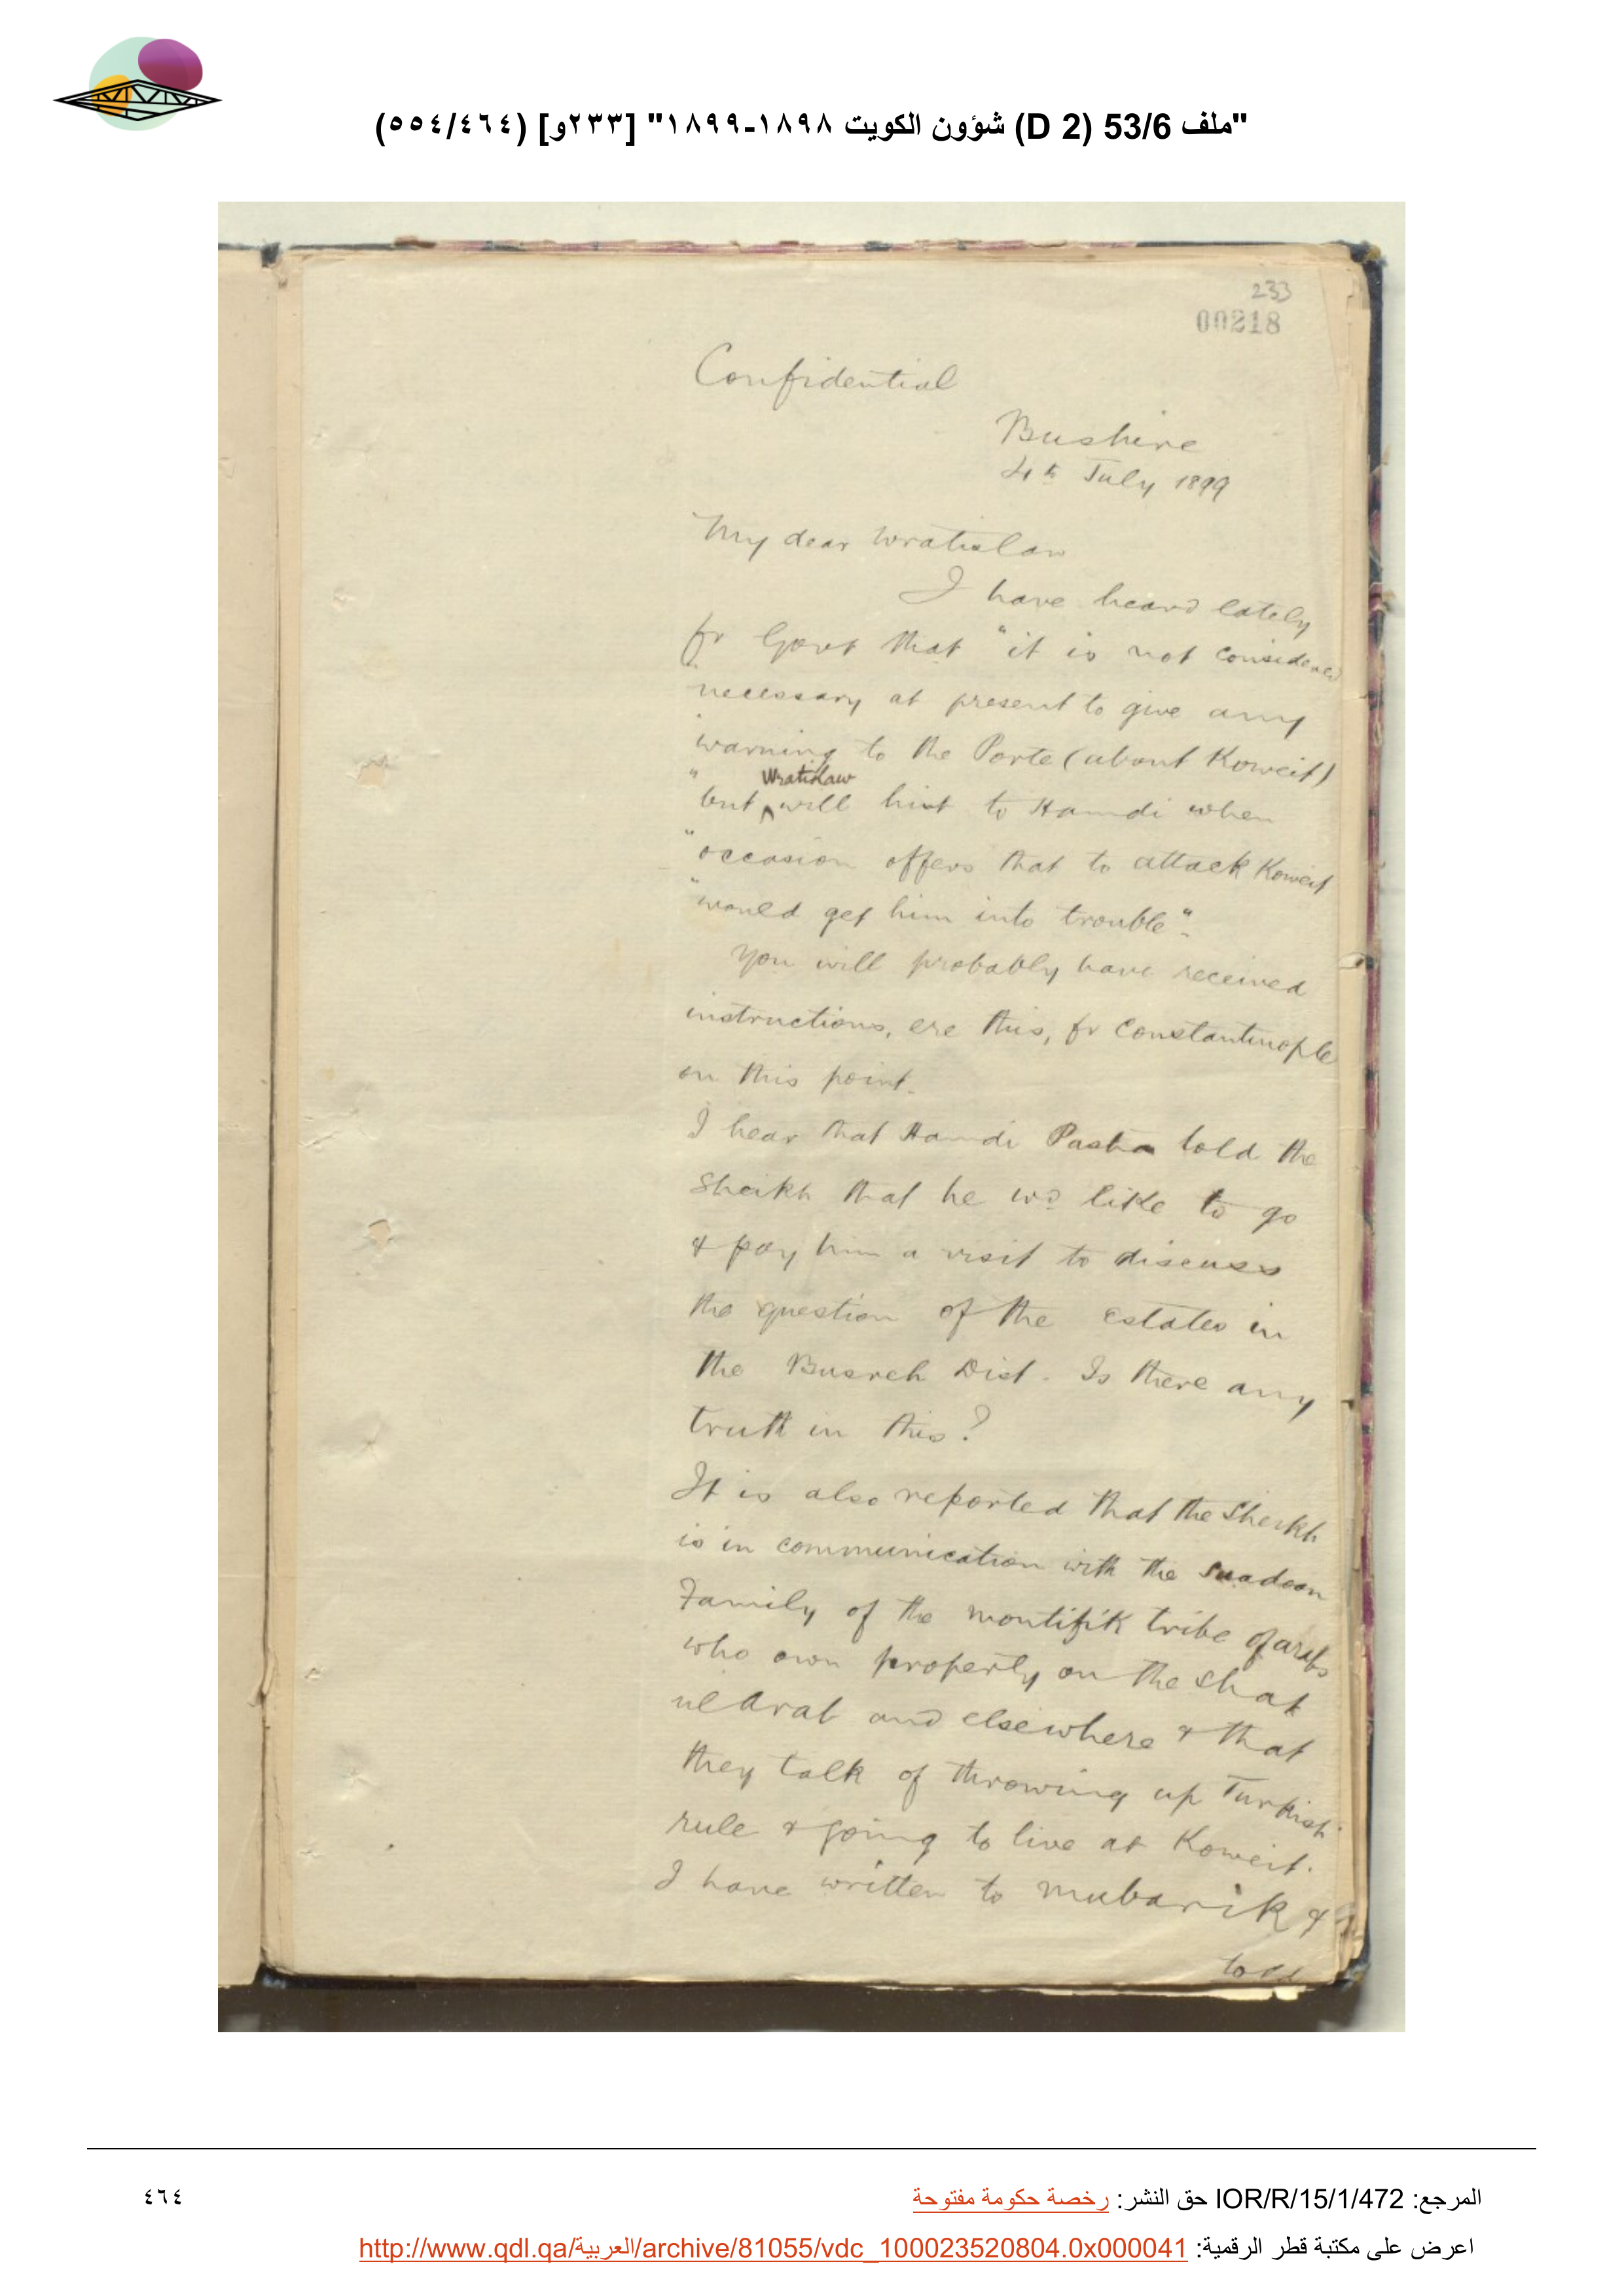 "ملف 53/6 (D 2) شؤون الكويت ١٨٩٨-١٨٩٩" [٢٣٣و] (٥٥٤/٤٦٤)
233
00218
Confidential
Bushire
4th July 1899
My dear Wratislaw
I have heard lately
fr Govt that "it is not considered
"necessary at present to give any
"warning to the Porte (about Koweit)
Wratislaw
"but will hint to Hamdi when
"occasion offers that to attack Koweit
"would get him into trouble".
You will probably have received
instructions, ere this, fr Constantinople
on this point.
I hear that Hamdi Pasha told the
Sheikh that he wd like to go
& pay him a visit to discuss
the question of the estates in
the Busreh Dist. Is there any
truth in this?
It is also reported that the Sheikh
is in communication with the Suadoon
Family of the Montifik tribe of arabs
who own property on the Shat
ul Arab and elsewhere & that
they talk of throwing up Turkish
rule & going to live at Koweit.
I have written to Mubarik &
told
المرجع: IOR/R/15/1/472 حق النشر: رخصة حكومة مفتوحة
٤٦٤
اعرض على مكتبة قطر الرقمية: http://www.qdl.qa/العربية/archive/81055/vdc_100023520804.0x000041